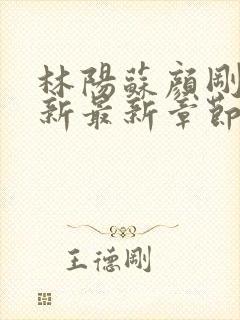 林陽蘇顏剛
新最新章節
王德剛